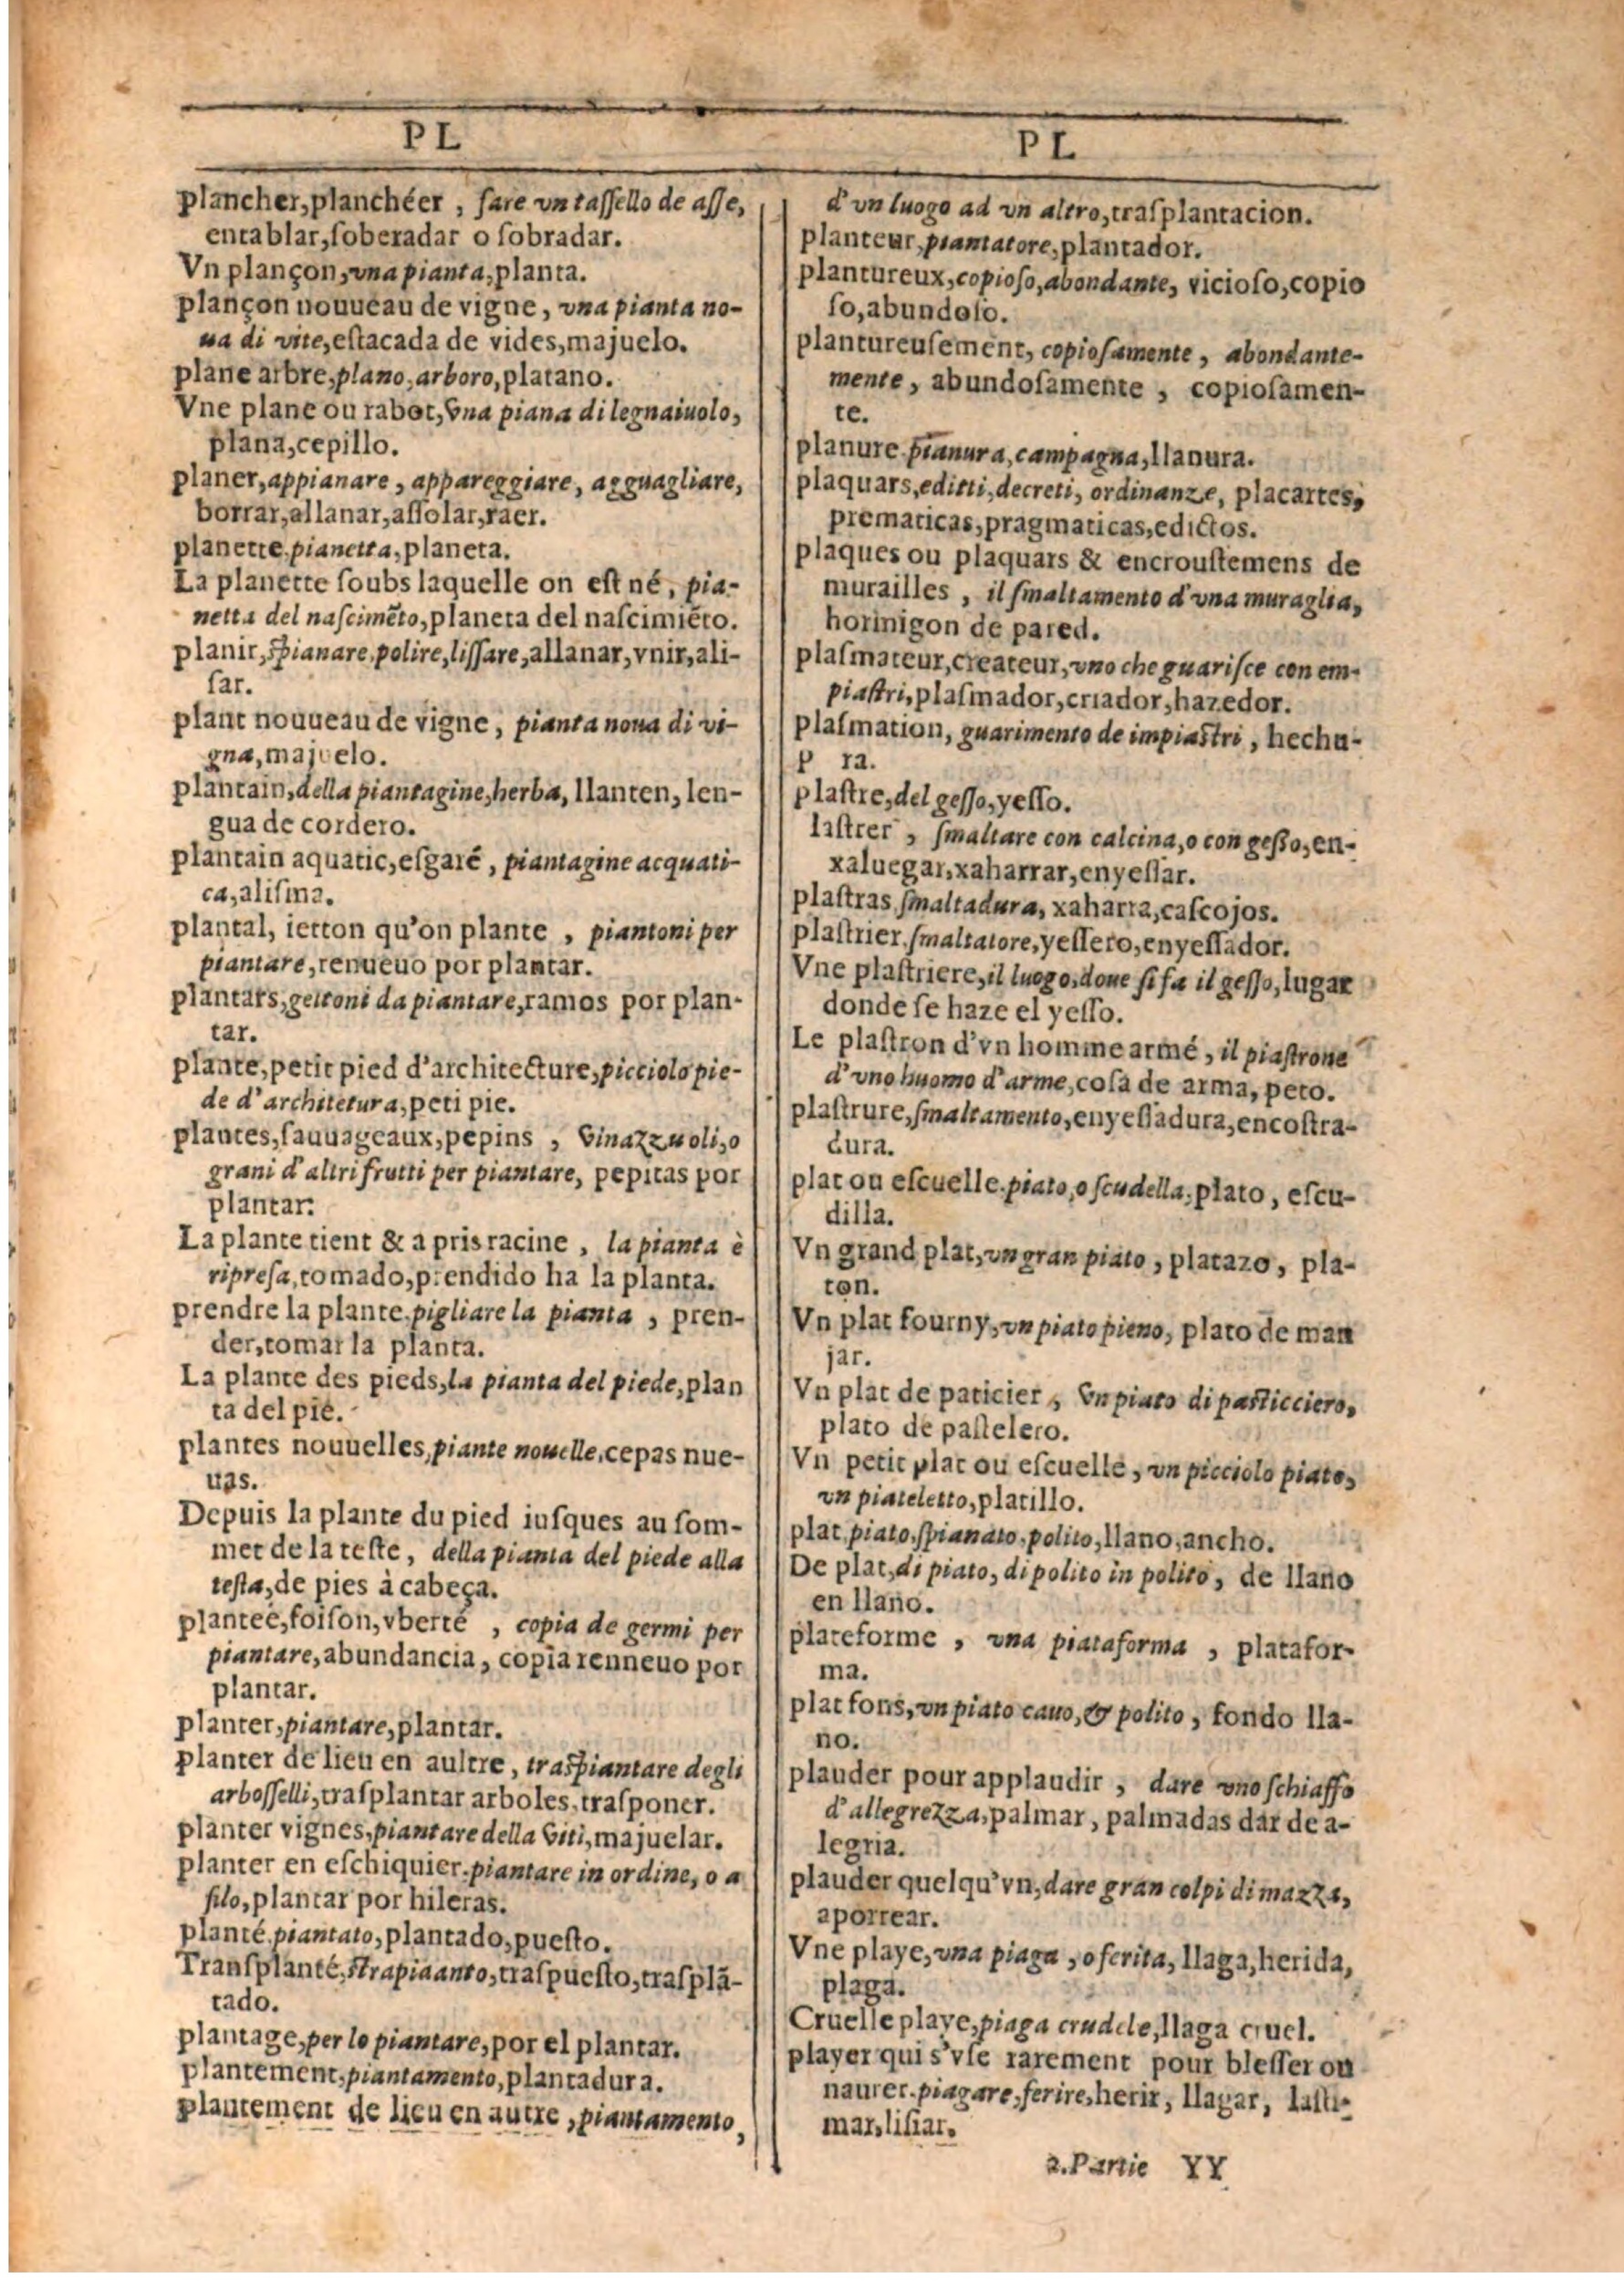 PL
plancher,planchéer , fare vn taſſello de aſſe,
entablar,ſoberadar o ſobradar.
Vn plançon,vna pianta,planta.
plançon nouueau de vigne, vna pianta no-
ua di vite,eſtacada de vides,majuelo.
plane arbre,plano,arboro,platano.
Vne plane ou rabot,vna piana di legnaiuolo,
plana,cepillo.
planer,appianare, appareggiare, agguagliare,
borrar,allanar,aſſolar,raer.
planette.pianetta,planeta.
La planette ſoubs laquelle on est né, pia-
netta del naſcimẽto,planeta del naſcimiẽto.
planir,ſpianare,polire,liſſare,allanar,vnir,ali-
ſar.
plant nouueau de vigne, pianta noua di vi-
gna,majuelo.
plantain,della piantagine,herba, llanten, len-
gua de cordero.
plantain aquatic,eſgaré, piantagine acquati-
ca,aliſma.
plantal, ietton qu'on plante , piantoni per
piantare,renueuo por plantar.
plantars,gettoni da piantare,ramos por plan-
tar.
plante,petit pied d'architecture,picciolo pie-
de d'architetura,peti pie.
plantes,ſauuageaux,pepins , vinazzuoli,o
grani d'altri frutti per piantare, pepitas por
plantar.
La plante tient & a pris racine , la pianta è
ripreſa,tomado,prendido ha la planta.
prendre la plante.pigliare la pianta , pren-
der,tomar la planta.
La plante des pieds,la pianta del piede,plan
ta del pie.
plantes nouuelles,piante nouelle,cepas nue-
uas.
Depuis la plante du pied iuſques au ſom-
met de la teſte, della pianta del piede alla
teſta,de pies à cabeça.
planteé,foiſon,vberté , copia de germi per
piantare,abundancia, copia renneuo por
plantar.
planter,piantare,plantar.
planter de lieu en aultre, traſpiantare degli
arboſſelli,traſplantar arboles,traſponer.
planter vignes,piantare della viti,majuelar.
planter en eſchiquier.piantare in ordine, o a
filo,plantar por hileras.
planté.piantato,plantado,pueſto.
Tranſplanté,ſtrapiaanto,traſpueſto,traſplã-
tado.
plantage,per lo piantare,por el plantar.
plantement,piantamento,plantadura.
plantement de lieu en autre ,piantamento,
PL
d'vn luogo ad vn altro,traſplantacion.
planteur,piantatore,plantador.
plantureux,copioſo,abondante, vicioſo,copio
ſo,abundoſo.
plantureuſement, copioſamente, abondante-
mente, abundoſamente , copioſamen-
te.
planure.pianura,campagna,llanura.
plaquars,editti,decreti, ordinanze, placartes,
prematicas,pragmaticas,edictos.
plaques ou plaquars & encrouſtemens de
murailles , il ſmaltamento d'vna muraglia,
horinigon de pared.
plaſmateur,createur,vno che guariſce con em-
piaſtri,plaſmador,criador,hazedor.
plaſmation, guarimento de impiaſtri, hechu-
P ra.
plaſtre,del geſſo,yeſſo.
laſtrer , ſmaltare con calcina,o con geſſo,en-
xaluegar,xaharrar,enyeſſar.
plaſtras.ſmaltadura, xaharra,caſcojos.
plaſtrier.ſmaltatore,yeſſero,enyeſſador.
Vne plaſtriere,il luogo,doue ſi fa il geſſo,lugar
donde ſe haze el yeſſo.
Le plaſtron d'vn homme armé, il piaſtrone
d'vno huomo d'arme,coſa de arma, peto.
plaſtrure,ſmaltamento,enyeſſadura,encoſtra-
dura.
plat ou eſcuelle.piato,o ſcudella,plato, eſcu-
dilla.
Vn grand plat,vn gran piato , platazo, pla-
ton.
Vn plat fourny,vn piato pieno, plato de man
jar.
Vn plat de paticier, vn piato di paſticciero,
plato de paſtelero.
Vn petit plat ou eſcuelle, vn picciolo piato,
vn piateletto,platillo.
plat.piato,ſpianato,polito,llano,ancho.
De plat,di piato, di polito in polito, de llano
en llano.
plateforme , vna piataforma , platafor-
ma.
plat fons,vn piato cauo,& polito, fondo lla-
no.
plauder pour applaudir , dare vno ſchiaffo
d'allegrezza,palmar, palmadas dar de a-
legria.
plauder quelqu'vn,dare gran colpi di mazza,
aporrear.
Vne playe,vna piaga, o ferita, llaga,herida,
plaga.
Cruelle playe,piaga crudele,llaga cruel.
player qui s'vſe rarement pour bleſſer ou
naurer.piagare,ferire,herir, llagar, laſti-
mar,liſiar.
2.Partie YY